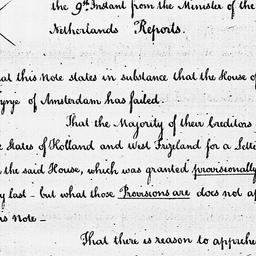 the 9th Instant from the Minister of the
Netherlands Reports.
at this Note states in substance that the House of
of Amsterdam has failed.
That the Majority of their Creditors
States of Holland and West Frizeland for a
the said House, which was granted provisionally
last - but what those Provisions are does not
Note -
That there is reason to